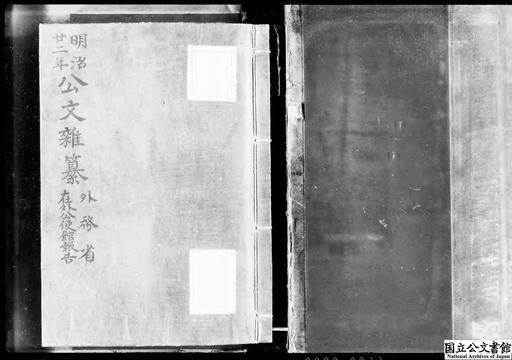 明治
廿二年
公文雑纂
外務省
在外公使館報告
国立公文書館
National Archives of Japan